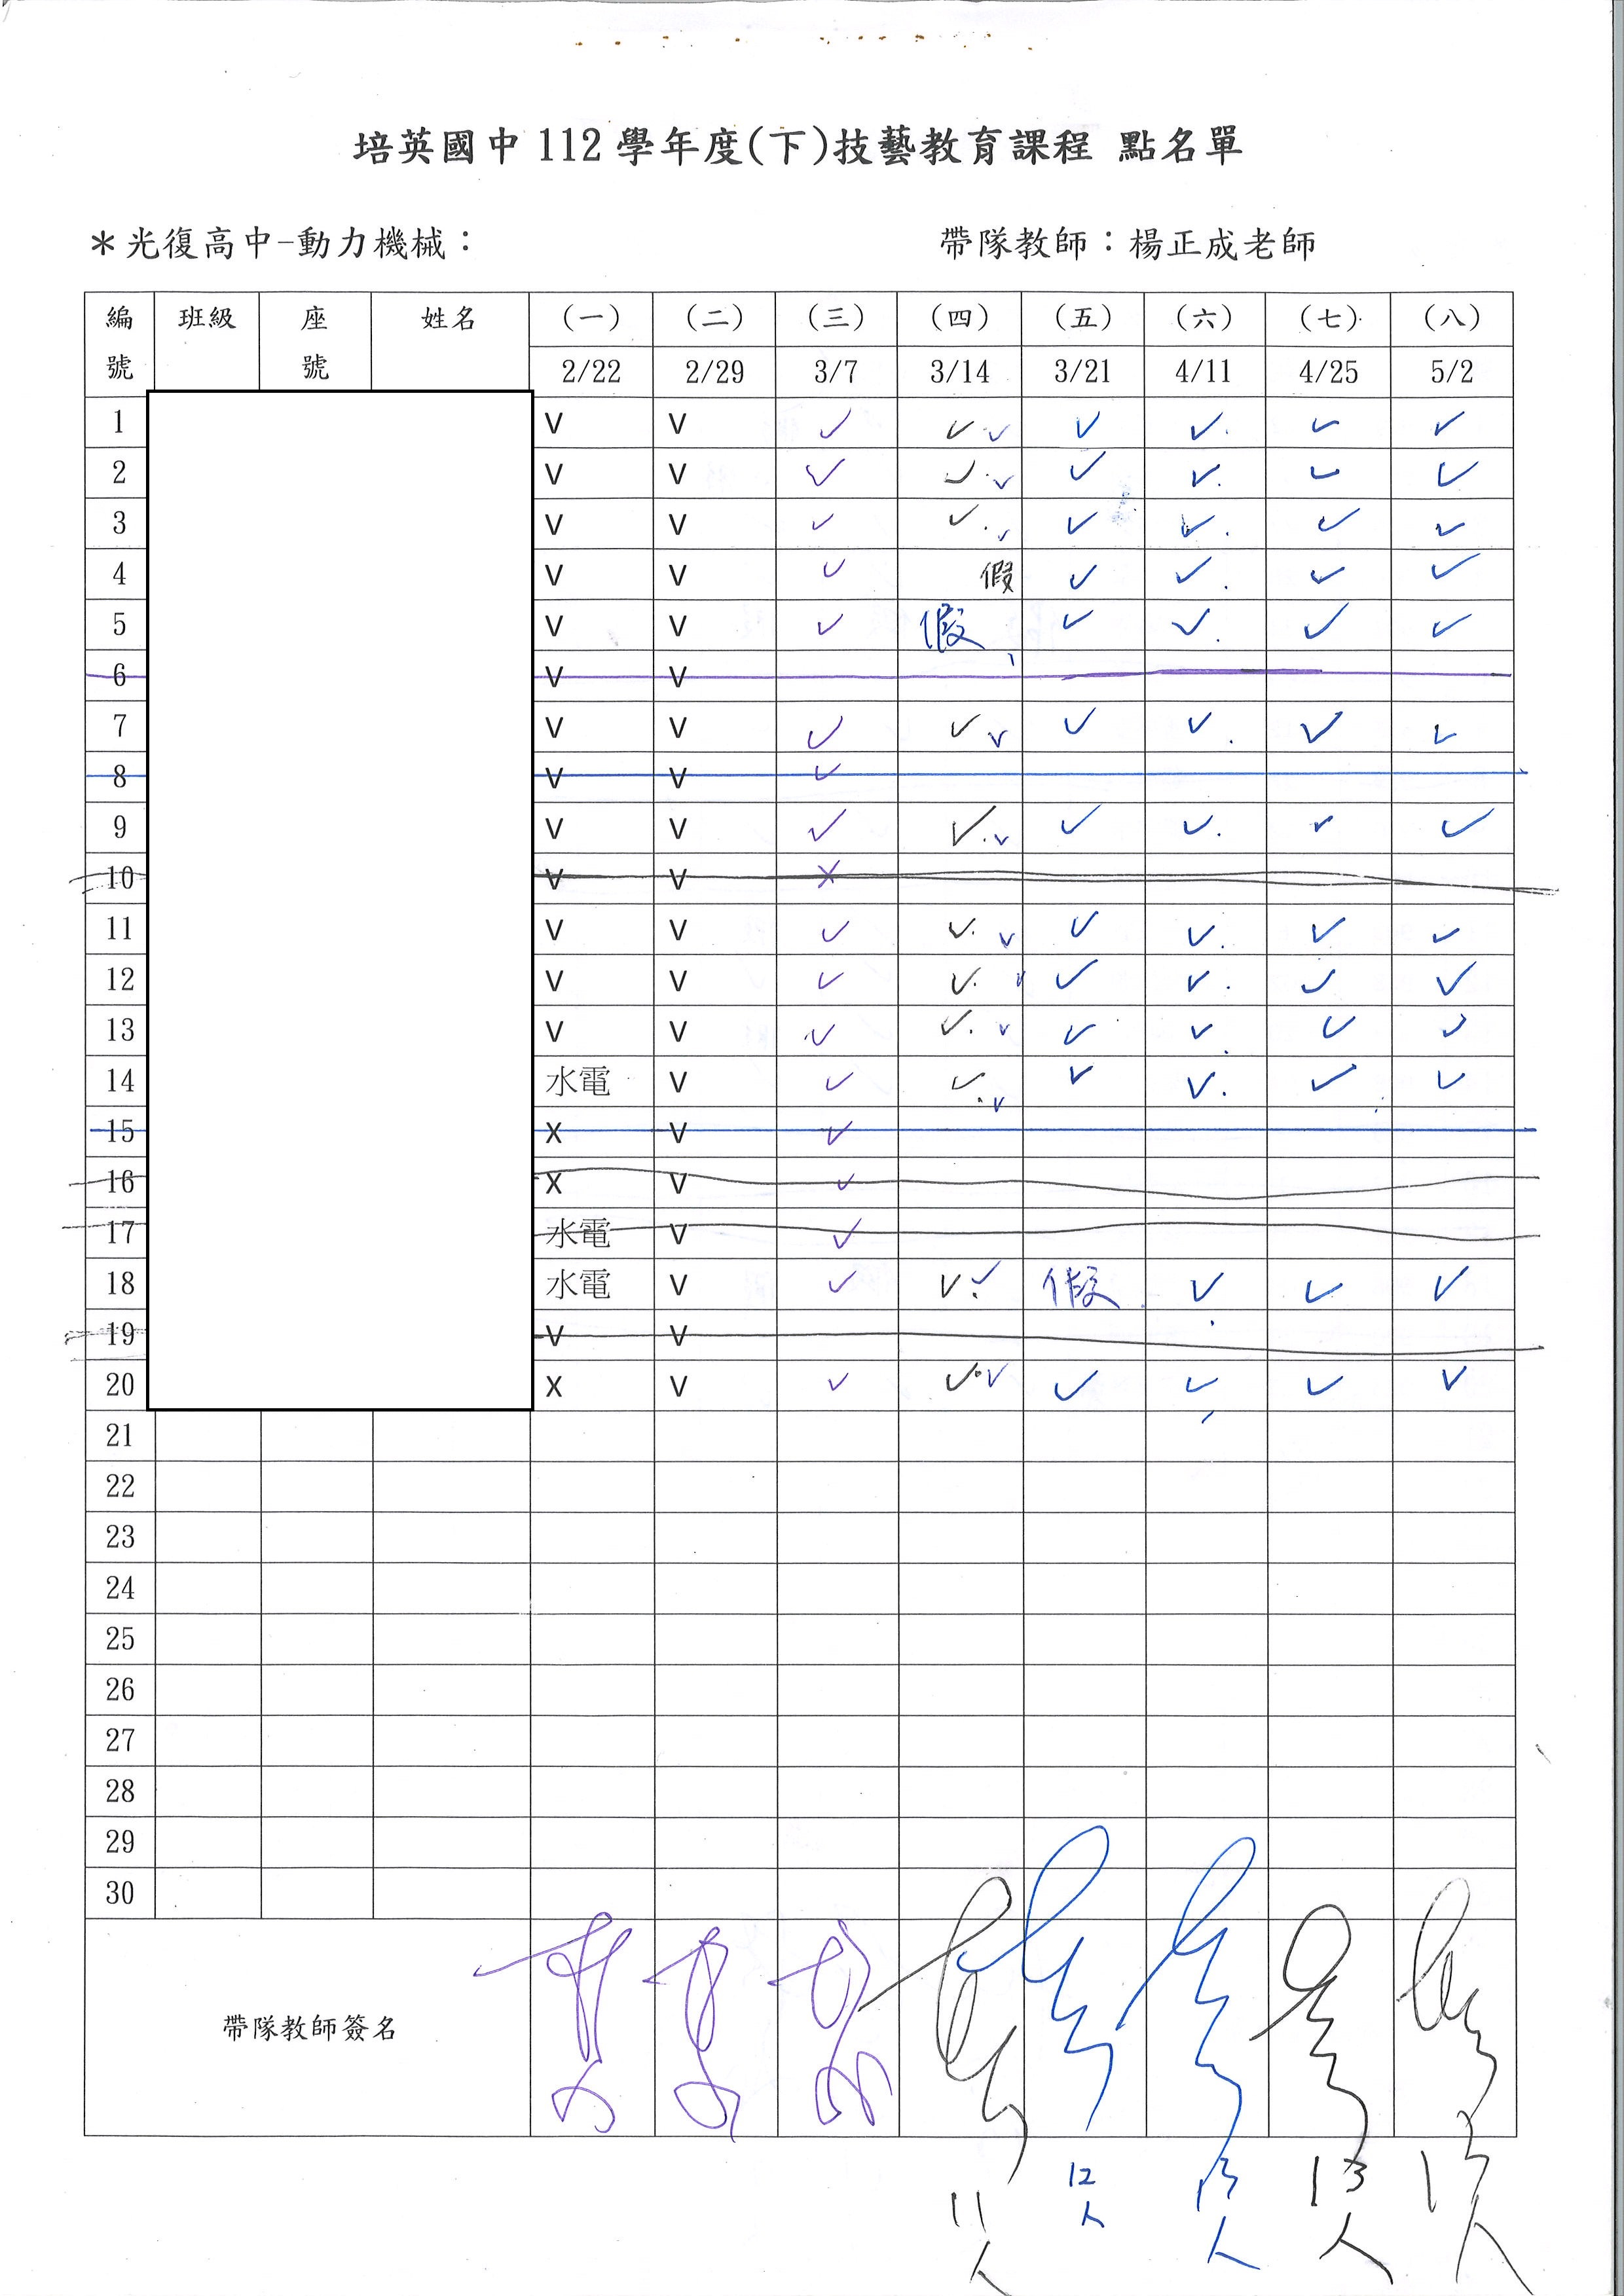 培英國中 112 學年度(下)技藝教育課程 點名單
＊光復高中-動力機械： 帶隊教師：楊正成老師
編號 班級 座號 姓名 (一) (二) (三) (四) (五) (六) (七) (八)
2/22 2/29 3/7 3/14 3/21 4/11 4/25 5/2
1 V V ✓ ✓ ✓ ✓ ✓ ✓ ✓
2 V V ✓ ✓ ✓ ✓ ✓ ✓ ✓
3 V V ✓ ✓ ✓ ✓ ✓ ✓ ✓
4 V V ✓ 假 ✓ ✓ ✓ ✓
5 V V ✓ 假 ✓ ✓ ✓ ✓
6 V V
7 V V ✓ ✓ ✓ ✓ ✓ ✓ ✓
8 V V ✓
9 V V ✓ ✓ ✓ ✓ ✓ ✓ ✓
10 V V X
11 V V ✓ ✓ ✓ ✓ ✓ ✓ ✓
12 V V ✓ ✓ ✓ ✓ ✓ ✓ ✓
13 V V ✓ ✓ ✓ ✓ ✓ ✓ ✓
14 水電 V ✓ ✓ ✓ ✓ ✓ ✓ ✓
15 X V ✓
16 X V ✓
17 水電 V ✓
18 水電 V ✓ ✓ ✓ 假 ✓ ✓ ✓
19 V V
20 X V ✓ ✓ ✓ ✓ ✓ ✓ ✓
21
22
23
24
25
26
27
28
29
30
帶隊教師簽名
11人 12人 13人 13人 13人